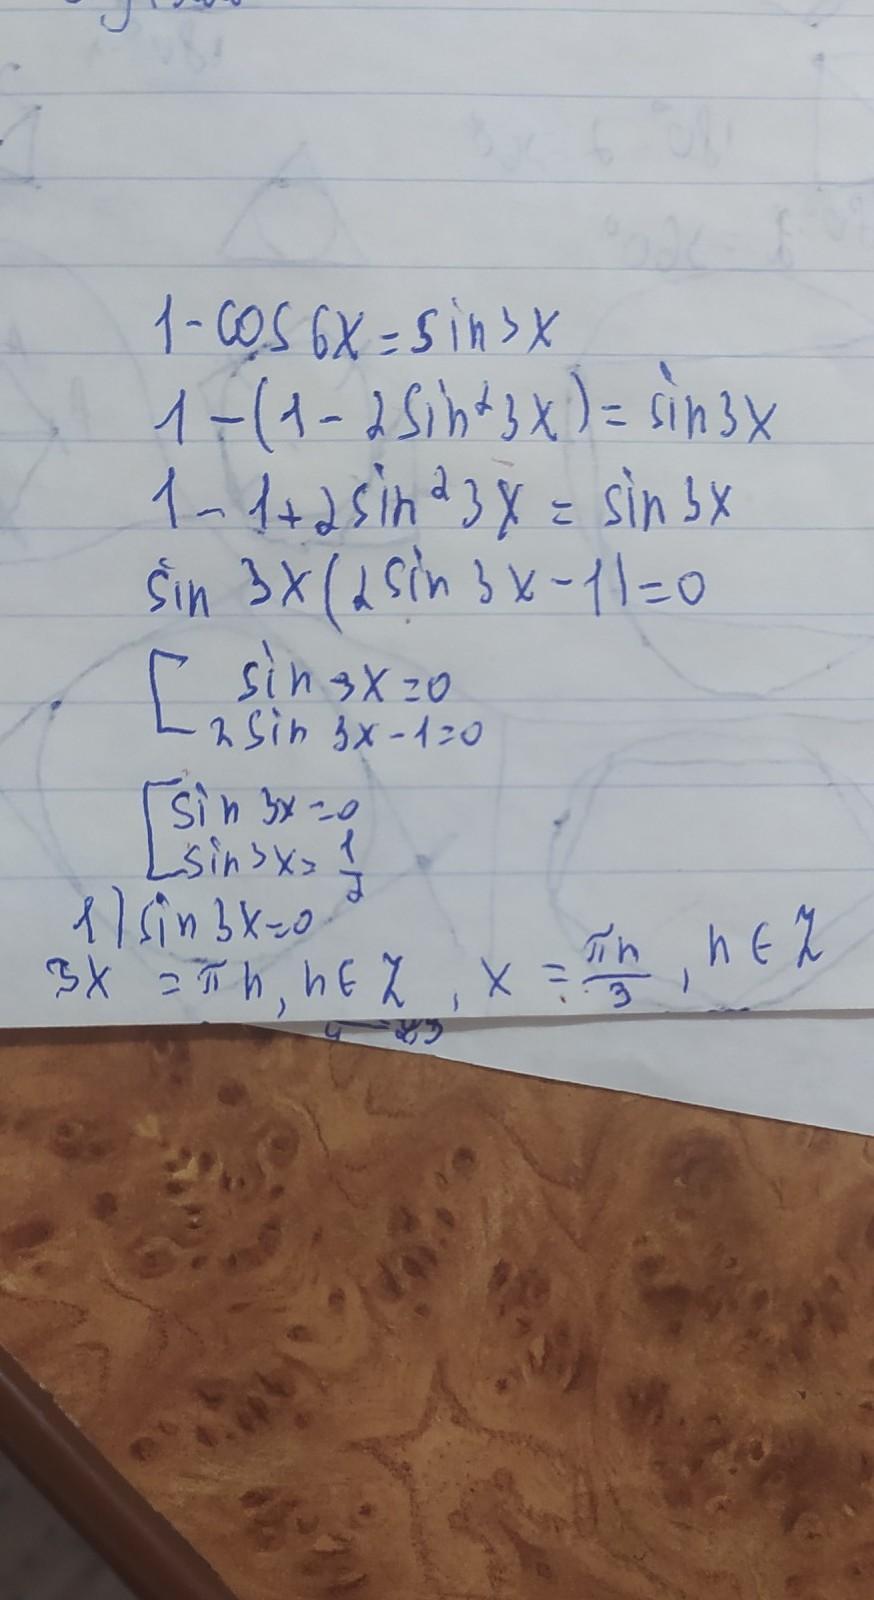 1-cos6x=sin3x
1-(1-2sin²3x)=sin3x
1-1+2sin²3x=sin3x
sin 3x(2sin 3x-1)=0
[ sin 3x=0
2sin 3x-1=0
[ sin 3x=0
sin3x=1/2
1) sin 3x=0
3x =πn, n∈Z, x = πn/3, n∈Z